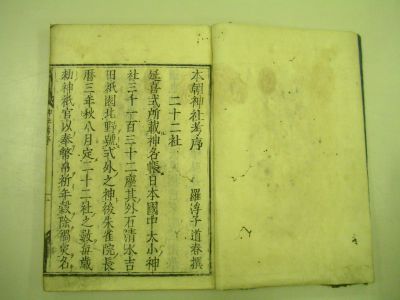 本朝神社考序
羅浮子道春撰
二十二社
延喜式所載神名帳日本國中大小神
社三千一百三十二座其外石清水吉
田祇園北野號式外之神後朱雀院長
曆三年秋八月定二十二社之數每歲
勅神祇官以奉幣帛祈年穀除禍災名